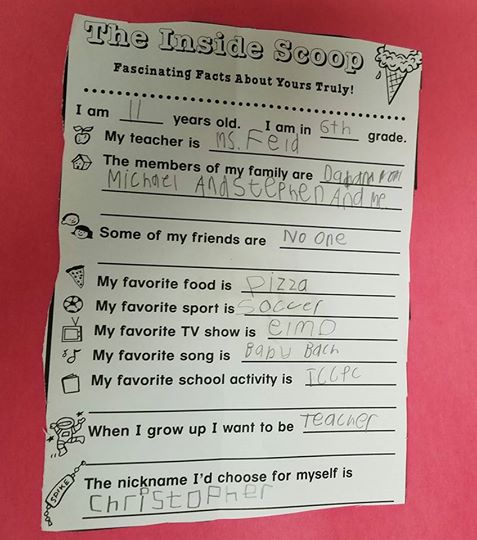 The Inside Scoop
Fascinating Facts About Yours Truly!
I am 11 years old. I am in 6th grade.
My teacher is Ms. Feld
The members of my family are
Michael And Stephen And me
Some of my friends are No One
My favorite food is pizza
My favorite sport is Soccer
My favorite TV show is elmo
My favorite song is Baby Bach
My favorite school activity is
When I grow up I want to be Teacher
SPIKE
The nickname I'd choose for myself is
Christopher